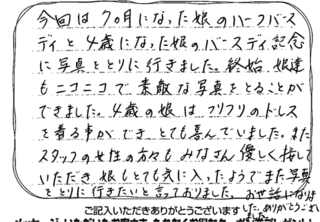 今回は7ヶ月になった娘のハーフバース
ディと4歳になった娘のバースディ記念
に写真をとりに行きました。終始、娘達
もニコニコで素敵な写真をとることが
できました。4歳の娘はフリフリのドレス
を着る事ができ、とても喜んでいました。また
スタッフの女性の方々もみなさん優しく接して
いただき娘もとても気に入ったようでまた写真
をとりに行きたいと言っておりました。お世話になりま
した。ありがとうござい
ご記入いただきありがとうございます